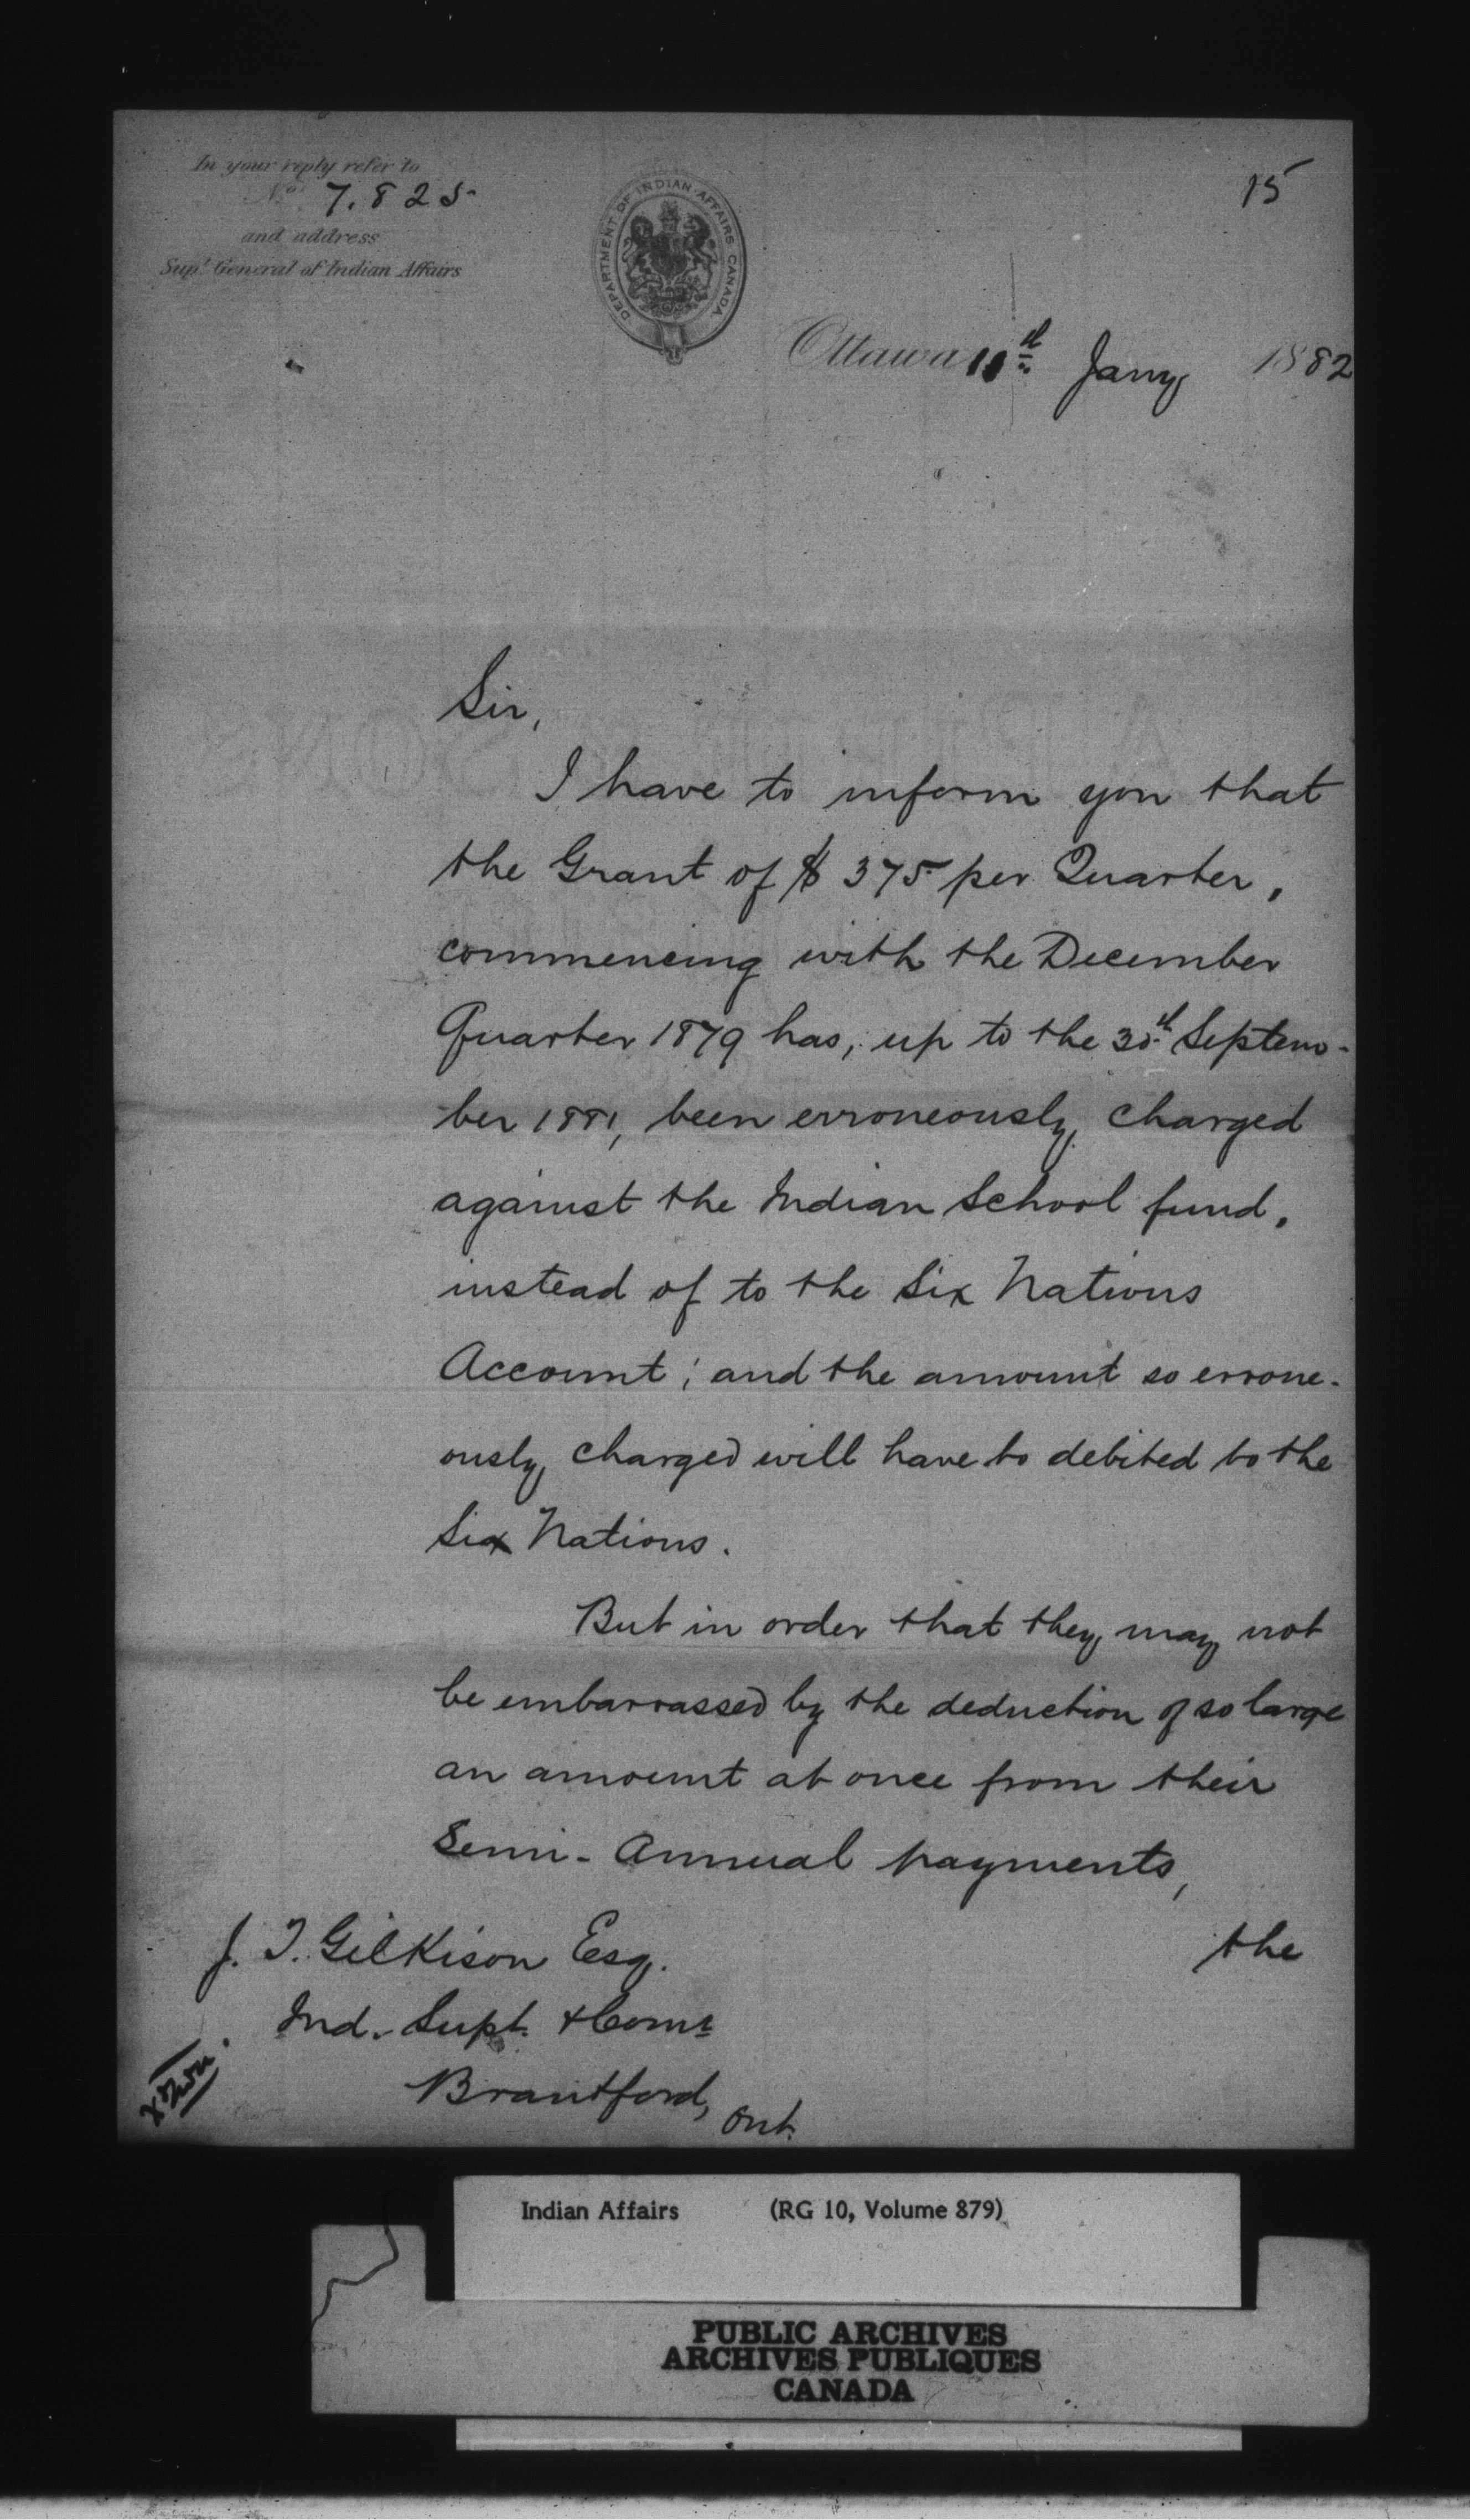 In your reply refer to
No. 7.825
and address
Supt. General of Indian Affairs
15
DEPARTMENT OF INDIAN AFFAIRS CANADA
Ottawa 11th Jany 1882
Sir,
I have to inform you that
the Grant of $ 375 per Quarter,
commencing with the December
Quarter 1879 has, up to the 30th Septem-
ber 1881, been erroneously charged
against the Indian School fund,
instead of to the Six Nations
Account; and the amount so errone-
ously charged will have to debited to the
Six Nations.
But in order that they may not
be embarrassed by the deduction of so large
an amount at once from their
Semi-Annual payments,
the
J. T. Gilkison Esq.
Ind. Supt. & Comr
Brantford, Ont.
Indian Affairs (RG 10, Volume 879)
PUBLIC ARCHIVES
ARCHIVES PUBLIQUES
CANADA